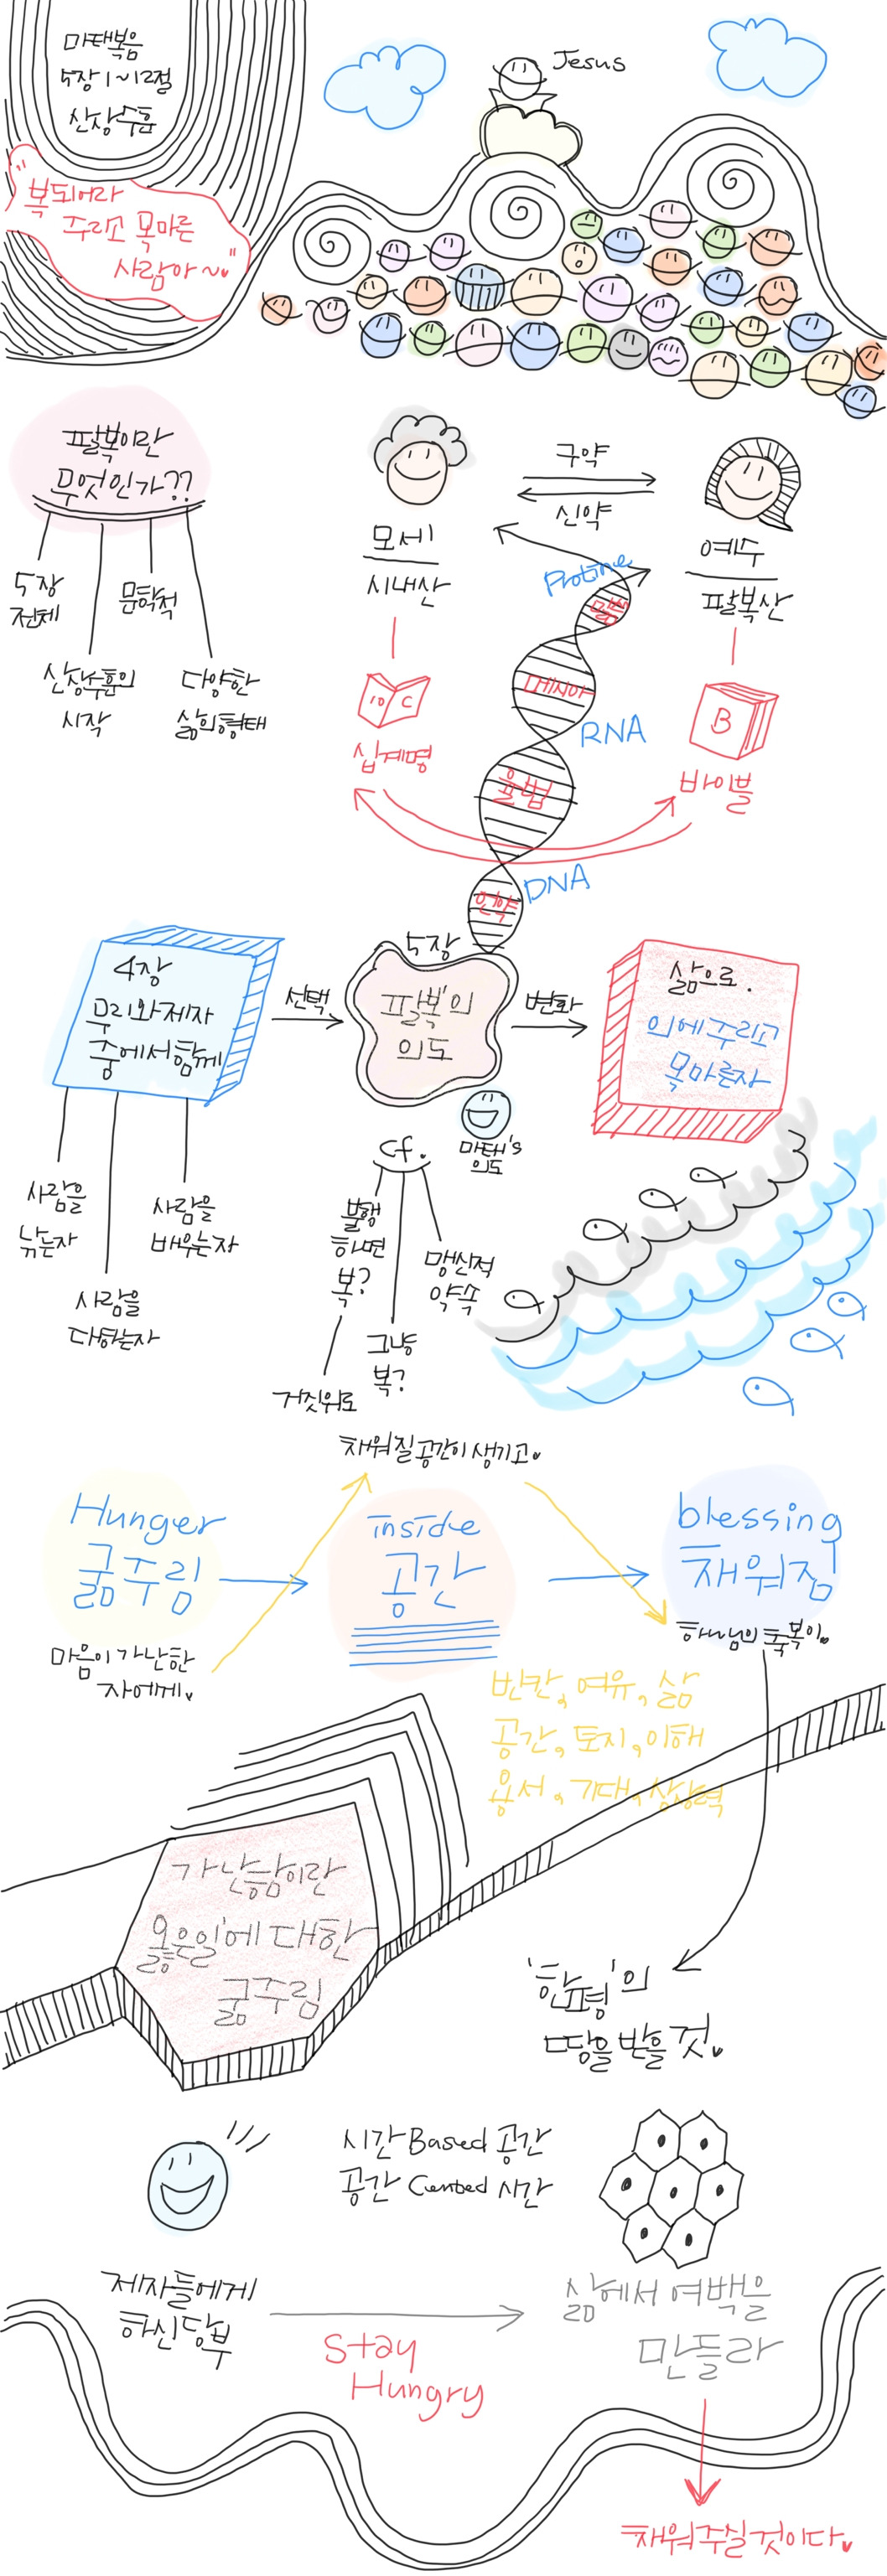 마태복음
5장 1~12절
산상수훈
Jesus
"복되어라
주리고 목마른
사람아~"
팔복이란
무엇인가??
5장
전체
산상수훈의
시작
문학적
다양한
삶의형태
모세
시내산
구약
신약
예수
팔복산
10 C
십계명
B
바이블
Protine
말씀
메시아
RNA
율법
DNA
언약
4장
무리와제자
중에서함께
선택
5장
'팔복'의
의도
변화
삶으로.
의에주리고
목마른자
마태's
의도
사람을
낚는자
사람을
대하는자
사람을
배우는자
cf.
불행
하면
복?
거짓위로
그냥
복?
맹신적
약속
채워질공간이생기고
Hunger
굶주림
마음이가난한
자에게
inside
공간
blessing
채워짐
하나님의축복이
빈칸, 여유, 삶
공간, 토지, 이해
용서, 기대, 상상력
가난함이란
'옳은일'에대한
굶주림
'한평'의
땅을받을것
시간Based공간
공간Centbed시간
제자들에게
하신당부
Stay
Hungry
삶에서여백을
만들라
채워주실것이다